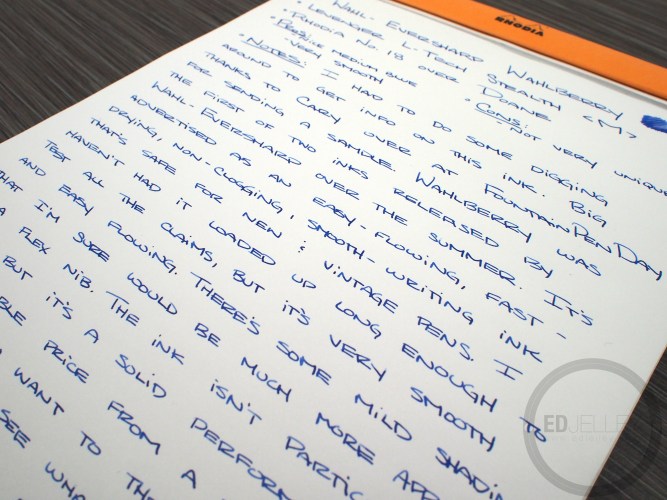 RHODIA
WAHL-EVERSHARP WAHLBERRY
• LEVENGER L-TECH STEALTH <M>
• RHODIA No. 18 OVER DOANE
• PROS: • CONS:
-NICE MEDIUM BLUE -NOT VERY UNIQUE
-VERY SMOOTH
• NOTES: I HAD TO DO SOME DIGGING
AROUND TO GET INFO ON THIS INK. BIG
THANKS TO CARY OVER AT FOUNTAINPENDAY
FOR SENDING A SAMPLE. WAHLBERRY WAS
THE FIRST OF TWO INKS RELEASED BY
WAHL-EVERSHARP OVER THE SUMMER. IT'S
ADVERTISED AS AN EASY-FLOWING, FAST-
DRYING, NON-CLOGGING, SMOOTH-WRITING INK
THAT'S SAFE FOR NEW & VINTAGE PENS. I
HAVEN'T HAD IT LOADED UP LONG ENOUGH TO
TEST ALL THE CLAIMS, BUT IT'S VERY SMOOTH
AND EASY FLOWING. THERE'S SOME MILD SHADIN
THAT I'M SURE WOULD BE MUCH MORE APP
A FLEX NIB. THE INK ISN'T PARTIC
BUT IT'S A SOLID PERFORM
BLE PRICE FROM A
WANT TO THE
SEE WHA
EDJELLEY